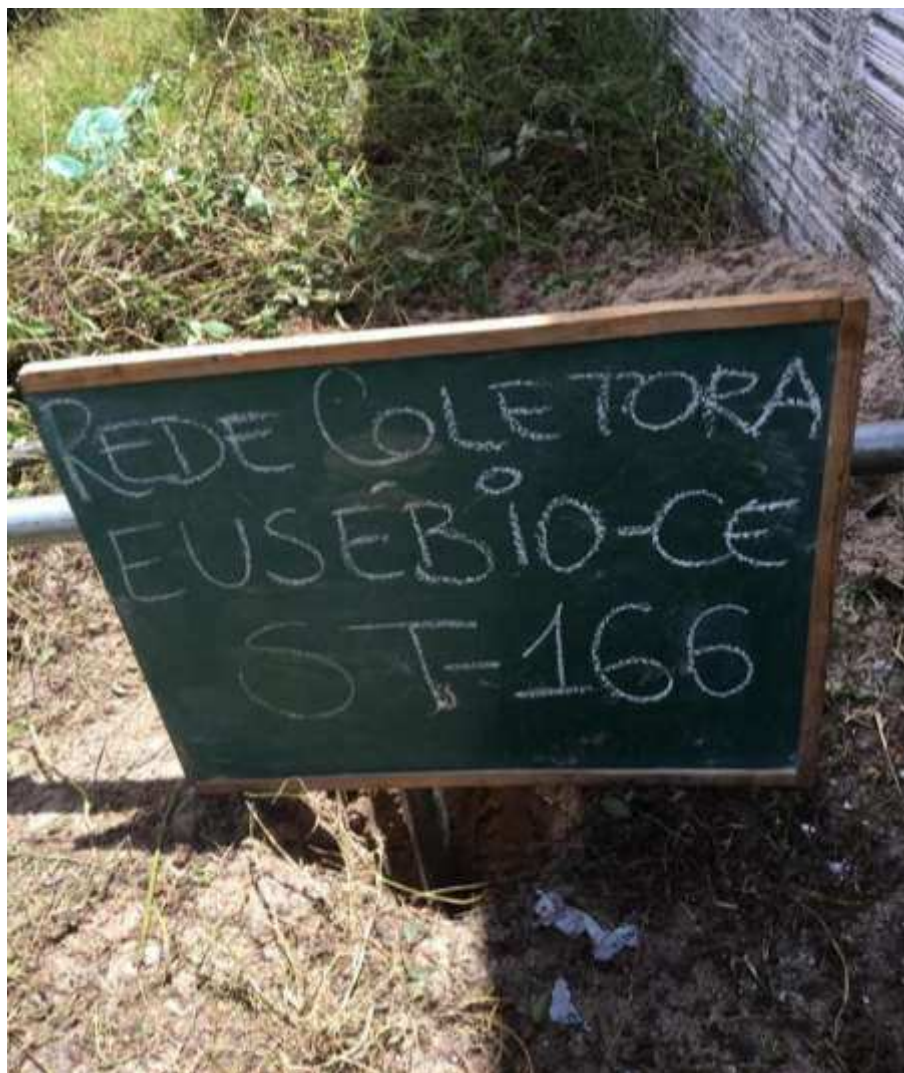 REDE COLETORA
EUSÉBIO-CE
ST-166